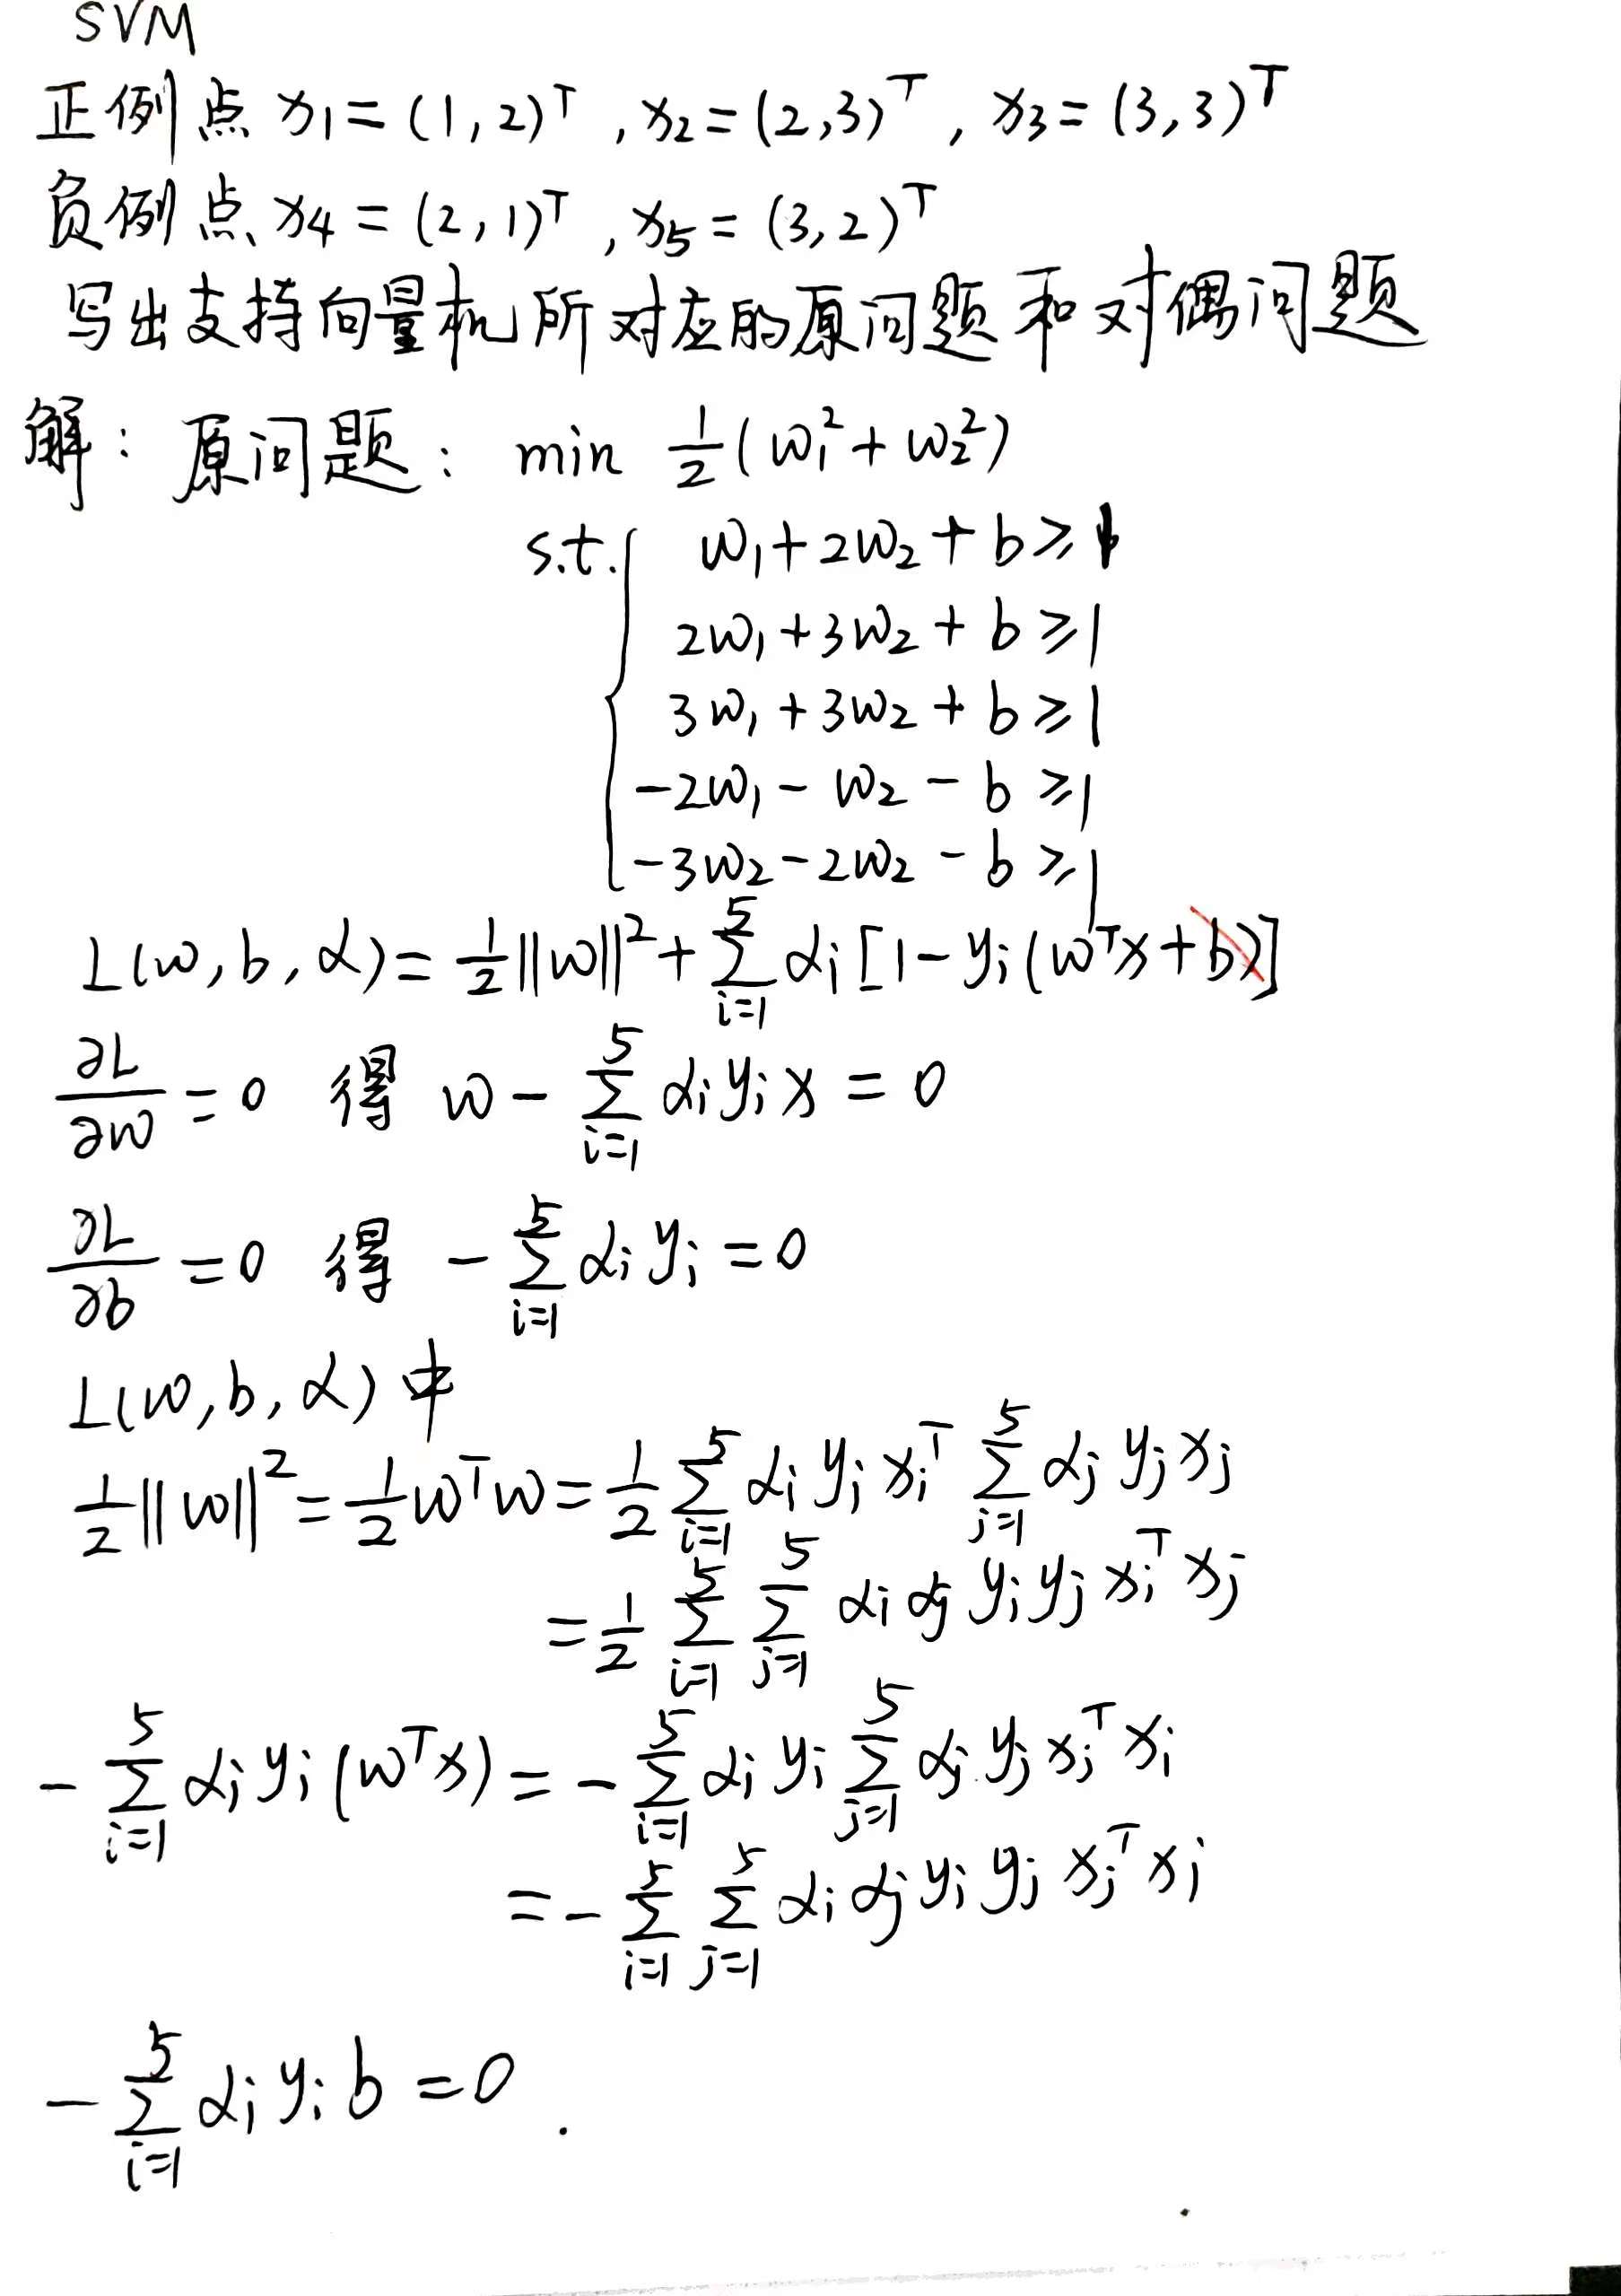 SVM
正例点 x₁ = (1,2)ᵀ , x₂ = (2,3)ᵀ , x₃ = (3,3)ᵀ
负例点 x₄ = (2,1)ᵀ , x₅ = (3,2)ᵀ
写出支持向量机所对应的原问题和对偶问题
解: 原问题: min ½(w₁²+w₂²)
s.t. { w₁+2w₂+b ≥ 1
2w₁+3w₂+b ≥ 1
3w₁+3w₂+b ≥ 1
-2w₁-w₂-b ≥ 1
-3w₂-2w₂-b ≥ 1
L(w,b,α) = ½||w||² + Σᵢ₌₁⁵ αᵢ[1-yᵢ(wᵀx+b)]
∂L/∂w = 0 得 w - Σᵢ₌₁⁵ αᵢyᵢx = 0
∂L/∂b = 0 得 -Σᵢ₌₁⁵ αᵢyᵢ = 0
L(w,b,α) 中
½||w||² = ½wᵀw = ½ Σᵢ₌₁⁵ αᵢyᵢxᵢᵀ Σⱼ₌₁⁵ αⱼyⱼxⱼ
= ½ Σᵢ₌₁⁵ Σⱼ₌₁⁵ αᵢαⱼyᵢyⱼxᵢᵀxⱼ
-Σᵢ₌₁⁵ αᵢyᵢ(wᵀx) = -Σᵢ₌₁⁵ αᵢyᵢ Σⱼ₌₁⁵ αⱼyⱼxⱼᵀxᵢ
= -Σᵢ₌₁⁵ Σⱼ₌₁⁵ αᵢαⱼyᵢyⱼxⱼᵀxᵢ
-Σᵢ₌₁⁵ αᵢyᵢb = 0 .